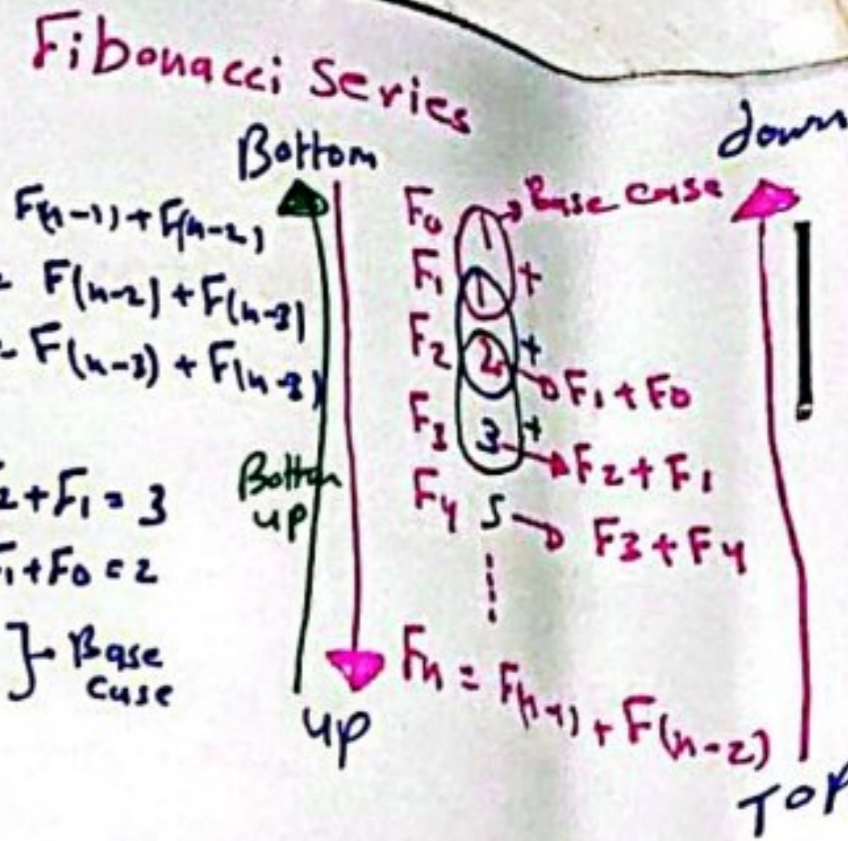 Fibonacci Series
Bottom
down
F(n-1) + F(n-2)
= F(n-2) + F(n-3)
= F(n-3) + F(n-3)
F2 + F1 = 3
F1 + F0 = 2
} Base
case
Bottom
up
up
F0 1 Base case
F1 1 +
F2 2 + F1 + F0
F3 3 + F2 + F1
F4 5 F3 + F4
Fn = F(n-1) + F(n-2)
TOP